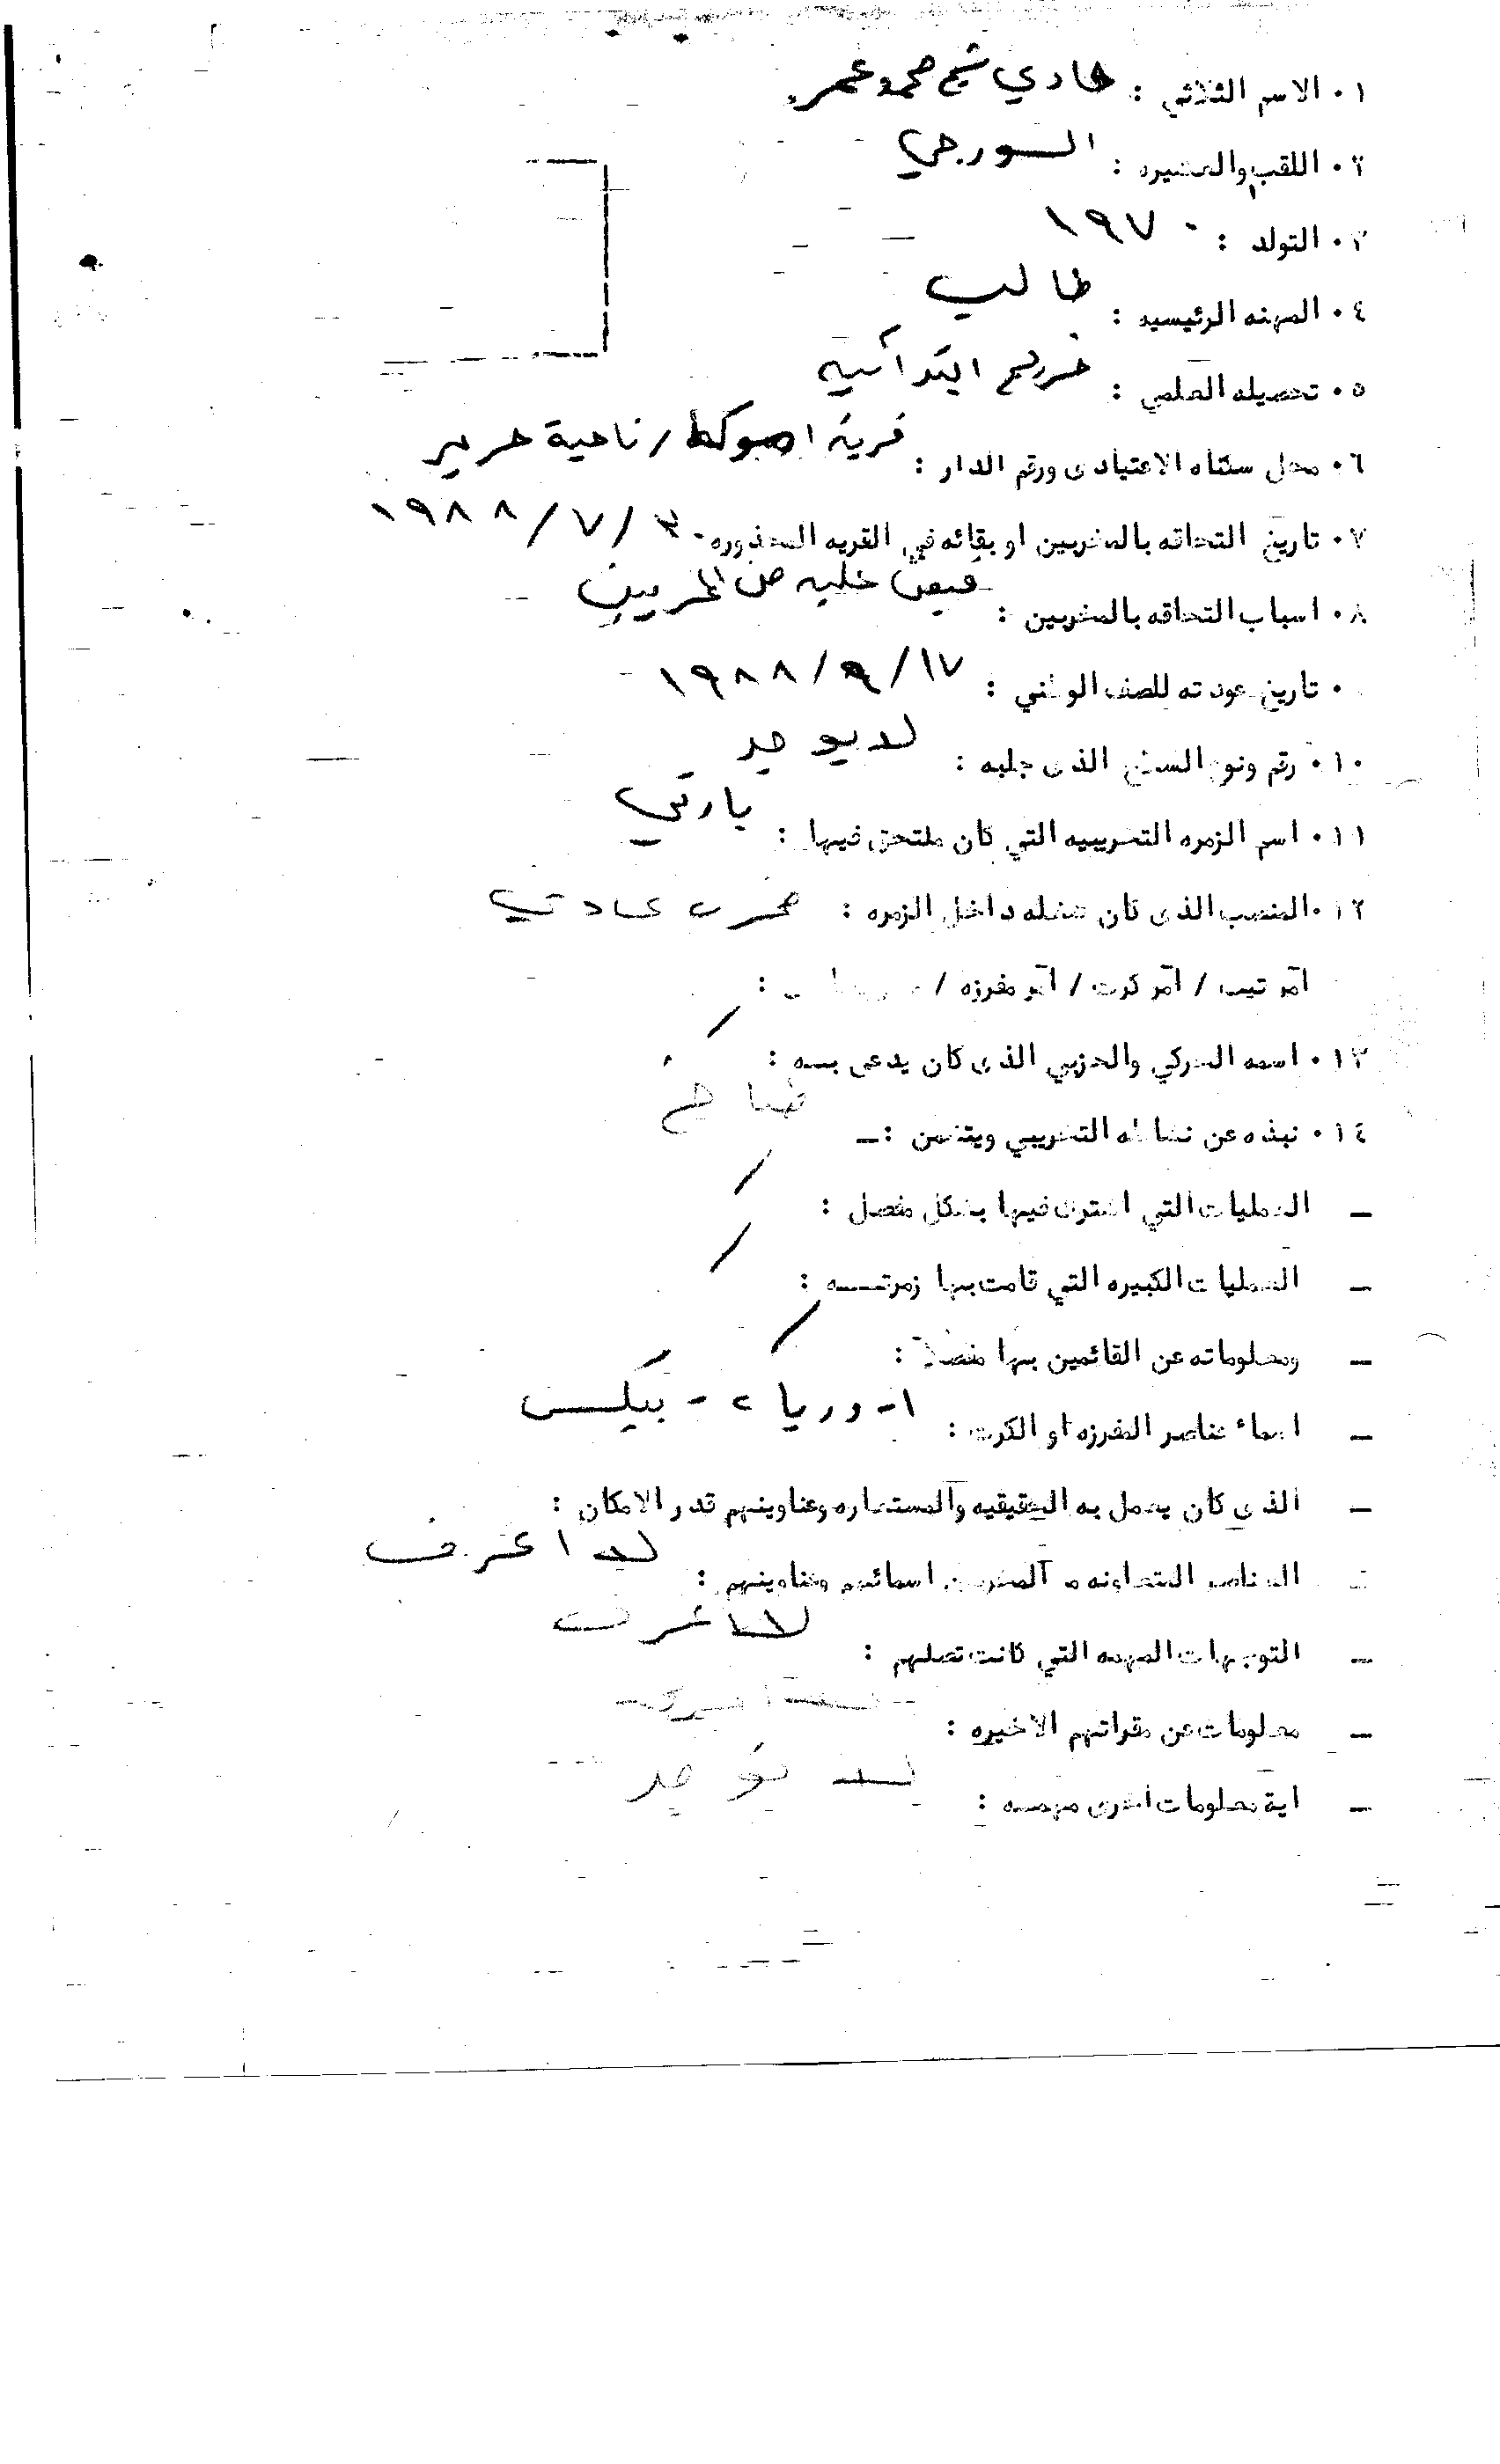 ١٠ الاسم الثلاثي : هادي شيخ محمود عمر
٢٠ اللقب والعشيره : السورجي
٣٠ التولد : ١٩٧٠
٤٠ المهنه الرئيسيه : طالب
٥٠ تحصيله العلمي : خريج ابتدائية
٦٠ محل سكناه الاعتيادى ورقم الدار : قرية / ناحية حرير
٧٠ تاريخ التحاقه بالمخربين او بقائه في القريه المحذوره ١٩٨٨/٧/٣٠
٨٠ اسباب التحاقه بالمخربين : قبض عليه من المخربين
٠ تاريخ عودته للصف الوطني : ١٩٨٨/٩/١٧
١٠٠ رقم ونوع السلاح الذى جلبه : لا يوجد
١١٠ اسم الزمره التخريبيه التي كان ملتحق فيها : بارتي
١٢٠ المنصب الذى كان يشغله داخل الزمره : مخرب عادي
آمر تيب / آمر كرت / آمر مفرزه / :
١٣٠ اسمه الحركي والحزبي الذى كان يدعى بــه : /
١٤٠ نبذه عن نشاطه التخريبي ويتضمن :ـ
ـ العمليات التي اشترك فيها بشكل مفصل : /
ـ العمليات الكبيره التي قامت بها زمرتــــه : /
ـ ومعلوماته عن القائمين بها مفصلاً : /
ـ اسماء عناصر المفرزه او الكرت : ١- دريا ٢- بيكس
ـ الذى كان يعمل به الحقيقيه والمستعاره وعناوينهم قدر الامكان :
ـ العناصر المتعاونه مع المخربين اسمائهم وعناوينهم : لا اعرف
ـ التوجيهات المهمه التي كانت تصلهم : لا اعرف
ـ معلومات عن مقراتهم الاخيره :
ـ اية معلومات اخرى مهمــه : لا يوجد